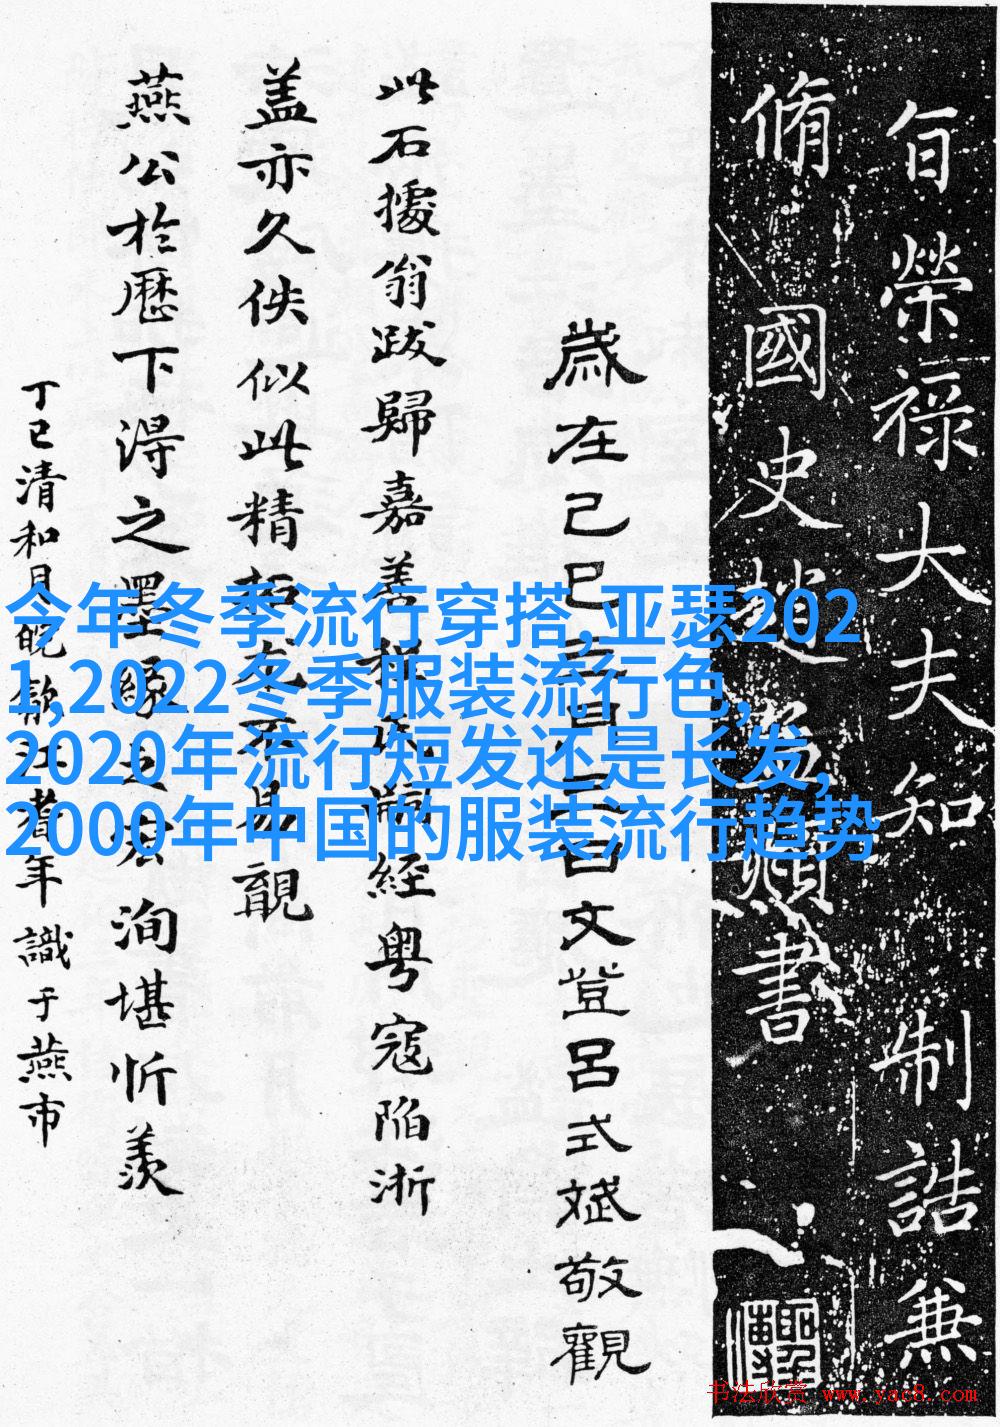 旨榮祿大夫知 制誥兼
脩國史趙孟頫書
歲在己巳五月三日文登呂式斌敬觀
此石據翁跋歸嘉善程氏閱經粤寇陷浙
盖亦久佚似此精拓尤不易覯
燕公於歷下淂之墨緣
洵堪忻羨
丁巳清和月
年識于燕市
今年冬季流行穿搭,亚瑟202
1,2022冬季服装流行色,
2020年流行短发还是长发,
2000年中国的服装流行趋势
书法欣赏 www.yac8.com